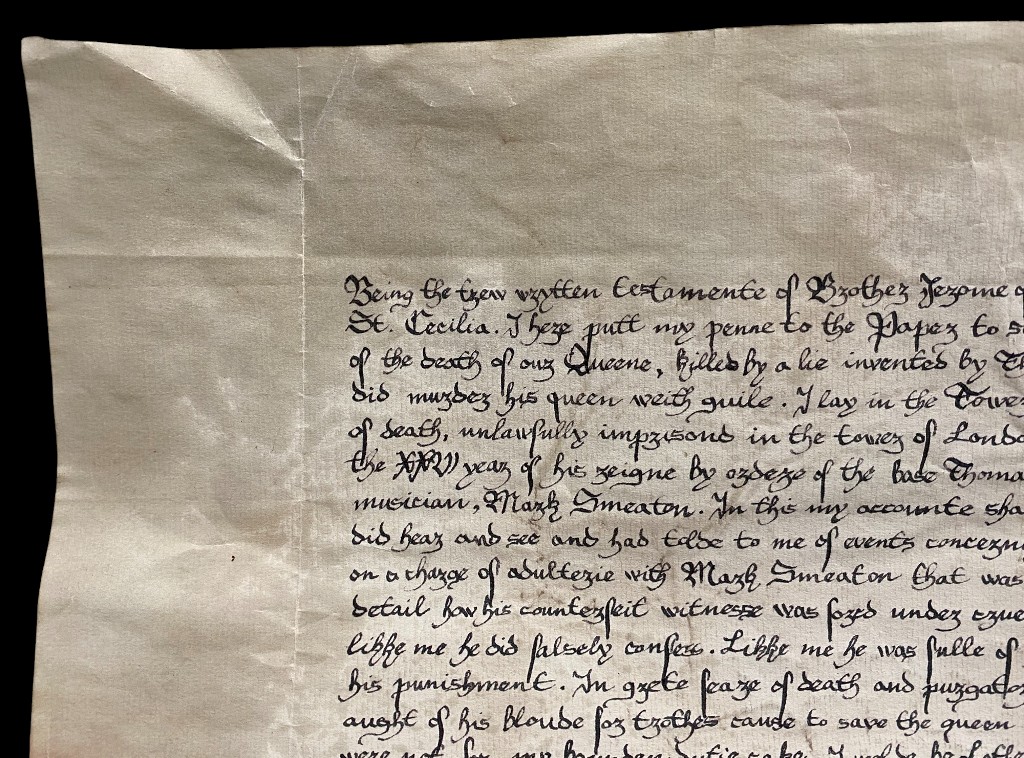 Being the trew wrytten testamente of Brother Jerome o
St. Cecilia. I here putt my penne to the Paper to s
of the death of our Queene, killed by a lie invented by Th
did murder his queen weith guile. I lay in the Tower
of death, unlawfully imprisond in the tower of Londo
the XXVII year of his reigne by ordere of the base Thoma
musician, Mark Smeaton. In this my accounte sha
did hear and see and had tolde to me of events concern
on a charge of adulterie with Mark Smeaton that was
detail how his counterfeit witnesse was forsd under crue
likke me he did falsely confess. Likke me he was fulle of
his punishment. In grete feare of death and purgator
aught of his bloude for trothes cause to save the queen
were not for my bounden dutie sake, I wolde